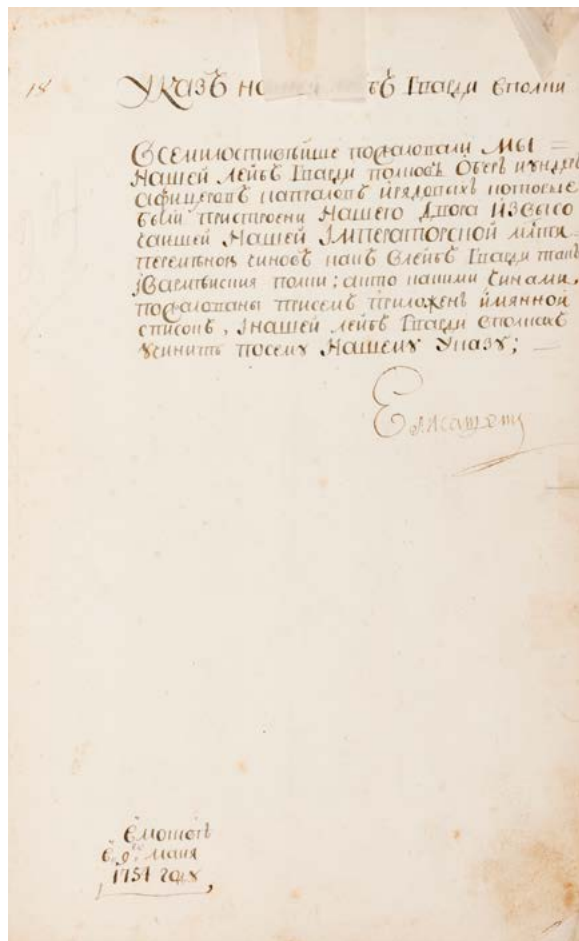 18
Указъ на Гвардіи вполки
Всемилостивѣйше пожаловали Мы
Нашей лейбъ Гвардіи полковъ Оберъ иундеръ
афицеровъ капраловъ ирядовыхъ которые
были пристроени Нашего Двора Извысо
чайшей Нашей Імператорской
чиновъ какъ влейбъ Гвардіи такъ
полки; акто какими Чинами,
пожалованы присемъ приложенъ имянной
списокъ, Інашей лейбъ Гвардіи вполкахъ
учинить посему Нашему Указу;
Елисаветъ
вмосквѣ
маия
1754 году